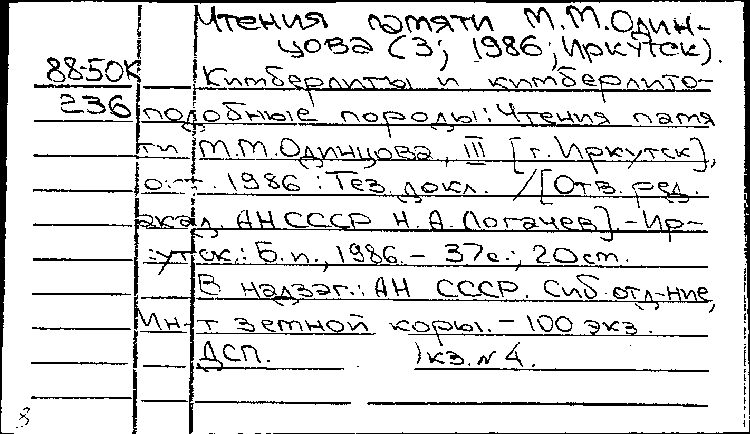 Чтения памяти М.М.Один-
цова (3; 1986; Иркутск).
88-50К Кимберлиты и кимберлито-
236 подобные породы: Чтения памя
ти М.М.Одинцова, III [г. Иркутск],
окт. 1986 : Тез. докл. / [Отв. ред.
акад. АН СССР Н.А. Логачев]. - Ир-
кутск.: Б.и., 1986. - 37с.; 20 см.
В надзаг.: АН СССР. Сиб. отд-ние,
Ин-т земной коры. - 100 экз.
ДСП. Экз. № 4.
8